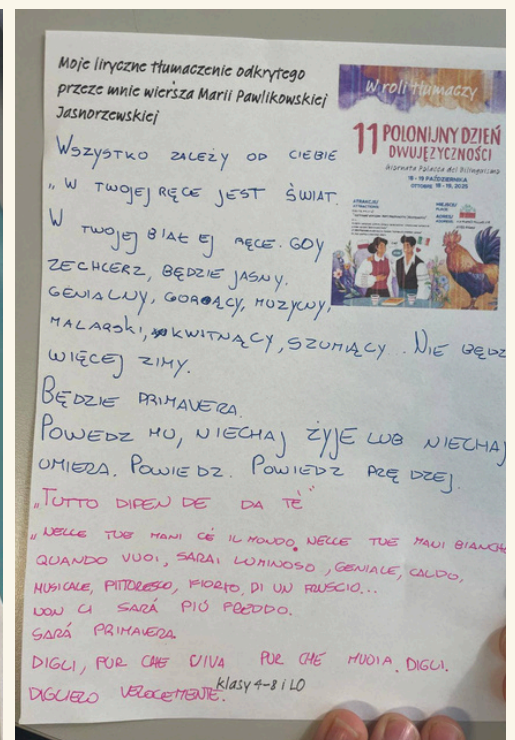 Moje liryczne tłumaczenie odkrytego
przeze mnie wiersza Marii Pawlikowskiej
Jasnorzewskiej
W roli tłumaczy
11 POLONIJNY DZIEŃ
DWUJĘZYCZNOŚCI
Giornata Polacca del Bilinguismo
18 - 19 PAŹDZIERNIKA
OTTOBRE 18 - 19, 2025
WSZYSTKO ZALEŻY OD CIEBIE
„W TWOJEJ RĘCE JEST ŚWIAT.
W TWOJEJ BIAŁEJ RĘCE. GDY
ZECHCERZ, BĘDZIE JASNY.
GENIALNY, GORĄCY, MUZYCNY,
MALARSKI, KWITNĄCY, SZUMIĄCY. NIE BĘDZ
WIĘCEJ ZIMY.
BĘDZIE PRIMAVERA.
POWEDZ MU, NIECHAJ ŻYJE LUB NIECHAJ
UMIERA. POWIEDZ. POWIEDZ PRĘDZEJ.
„TUTTO DIPENDE DA TÈ"
„NELLE TUE MANI CÉ IL MONDO. NELLE TUE MANI BIANCHE
QUANDO VUOI, SARAI LUMINOSO, GENIALE, CALDO,
MUSICALE, PITTORESCO, FIORITO, DI UN FRUSCIO...
NON CI SARÁ PIÚ FREDDO.
SARÁ PRIMAVERA
DIGLI, PUR CHE VIVA PUR CHÉ MUOIA. DIGLI.
DIGLIELO VELOCEMENTE.
klasy 4-8 i LO